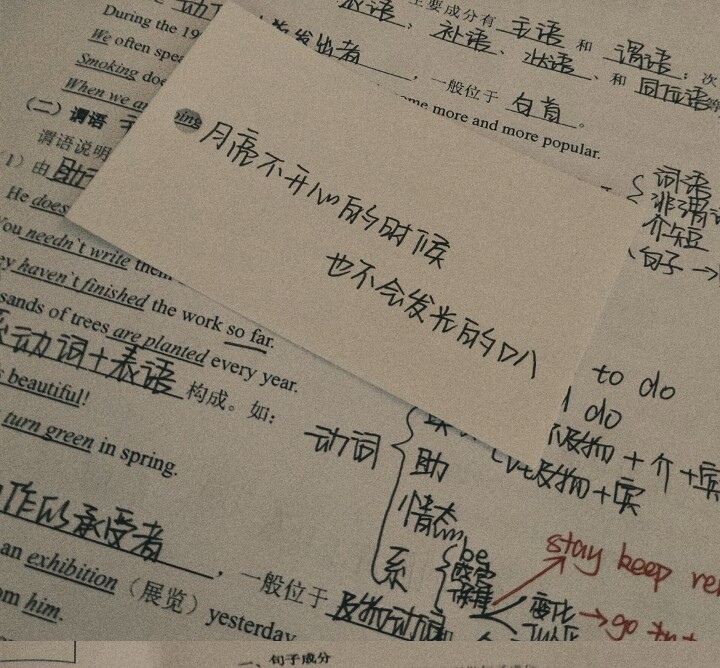 主要成分有 主语 和 谓语；次
表语、补语、状语、和 同位语等
During the 19
动作发出者，一般位于 句首。
We often spea
Smoking doe
ome more and more popular.
When we a
(二) 谓语
谓语说明
(1) 由助动
月亮不开心的时候
也不会发光的叭
词语
非谓语
介短
句子→
He does
You needn't write them
ey haven't finished the work so far.
sands of trees are planted every year.
系动词+表语 构成。如：
s beautiful!
turn green in spring.
to do
do
动词
及物+介+宾
及物+宾
助
情态
系
be
感官
保持
stay keep
变化
go
动作的承受者，一般位于 及物动词
an exhibition（展览）yesterday
om him.
一、句子成分